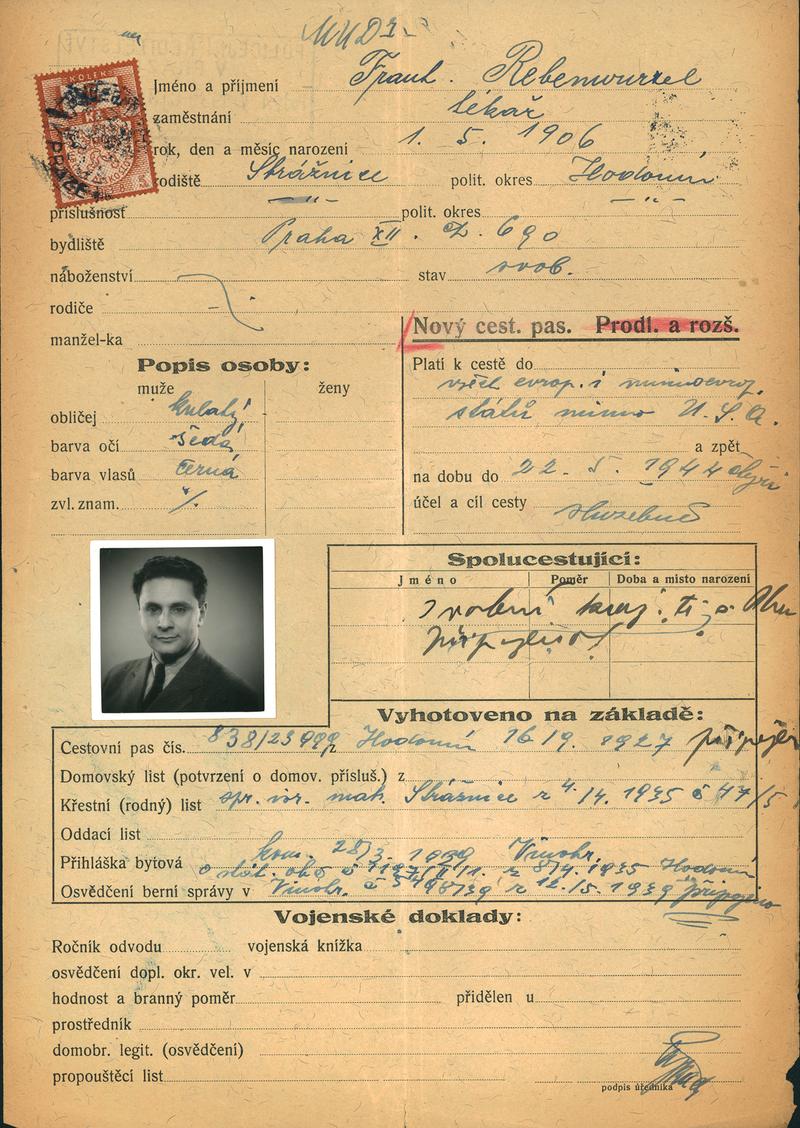 MUDr.
KOLEK
Jméno a příjmení Frant. Rebenwurzel
zaměstnání lékař
rok, den a měsíc narození 1. 5. 1906
rodiště Strážnice polit. okres Hodonín
příslušnost —"— polit. okres —"—
bydliště Praha XII. čp. 690
náboženství stav svob.
rodiče
manžel-ka
Nový cest. pas. Prodl. a rozš.
Popis osoby:
muže ženy
obličej kulatý
barva očí šedá
barva vlasů černá
zvl. znam. ./.
Platí k cestě do
všech evrop. i mimoevrop.
států mimo U.S.A.
a zpět
na dobu do 22. 5. 1944
účel a cíl cesty služebně
Spolucestující:
Jméno Poměr Doba a místo narození
Vyhotoveno na základě:
Cestovní pas čís. 838/23999 Hodonín 16/9. 1927
Domovský list (potvrzení o domov. přísluš.) z
Křestní (rodný) list spr. izr. mat. Strážnice z 4./4. 1935 č 47/5
Oddací list
Přihláška bytová kom. 28/3. 1939 Vinohr.
8/4. 1935 Hodonín
Osvědčení berní správy v Vinohr. z 12./5. 1939 připojeno
Vojenské doklady:
Ročník odvodu vojenská knížka
osvědčení dopl. okr. vel. v
hodnost a branný poměr přidělen u
prostředník
domobr. legit. (osvědčení)
propouštěcí list
podpis úředníka